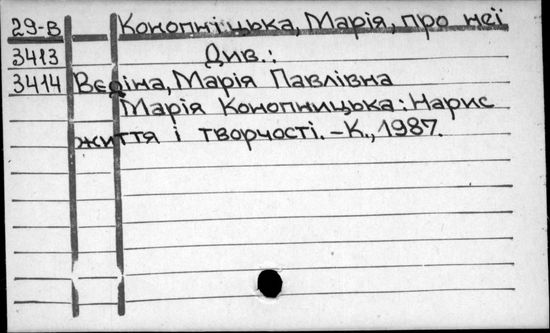 29-В Конопніцька, Марія, про неї
3413 Див.:
3414 Вєдіна, Марія Павлівна
Марія Конопницька: Нарис
життя і творчості. – К., 1987.